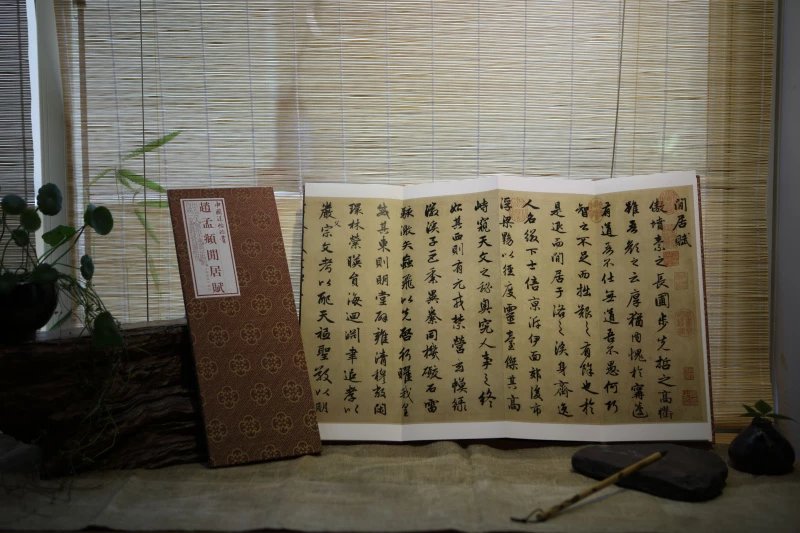 趙孟頫閒居賦
閒居賦
傲墳素之長圃步先哲之高衢
雖吾顏之云厚猶內愧於甯蘧
有道吾不仕無道吾不愚何巧
智之不足而拙艱之有餘也於
是退而閒居于洛之涘身齊逸
人名綴下士倍京泝伊面郊後市
浮梁黝以徑度靈臺傑其高
峙窺天文之秘奧究人事之終
始其西則有元戎禁營玄幙綠
徽谿子巨黍異絭同機礮石雷
駭激矢蝱飛以先啓行曜我皇
威其東則明堂辟雍清穆敞閑
環林縈暎圓海迴淵聿追孝以
嚴父宗文考以配天祗聖敬以明